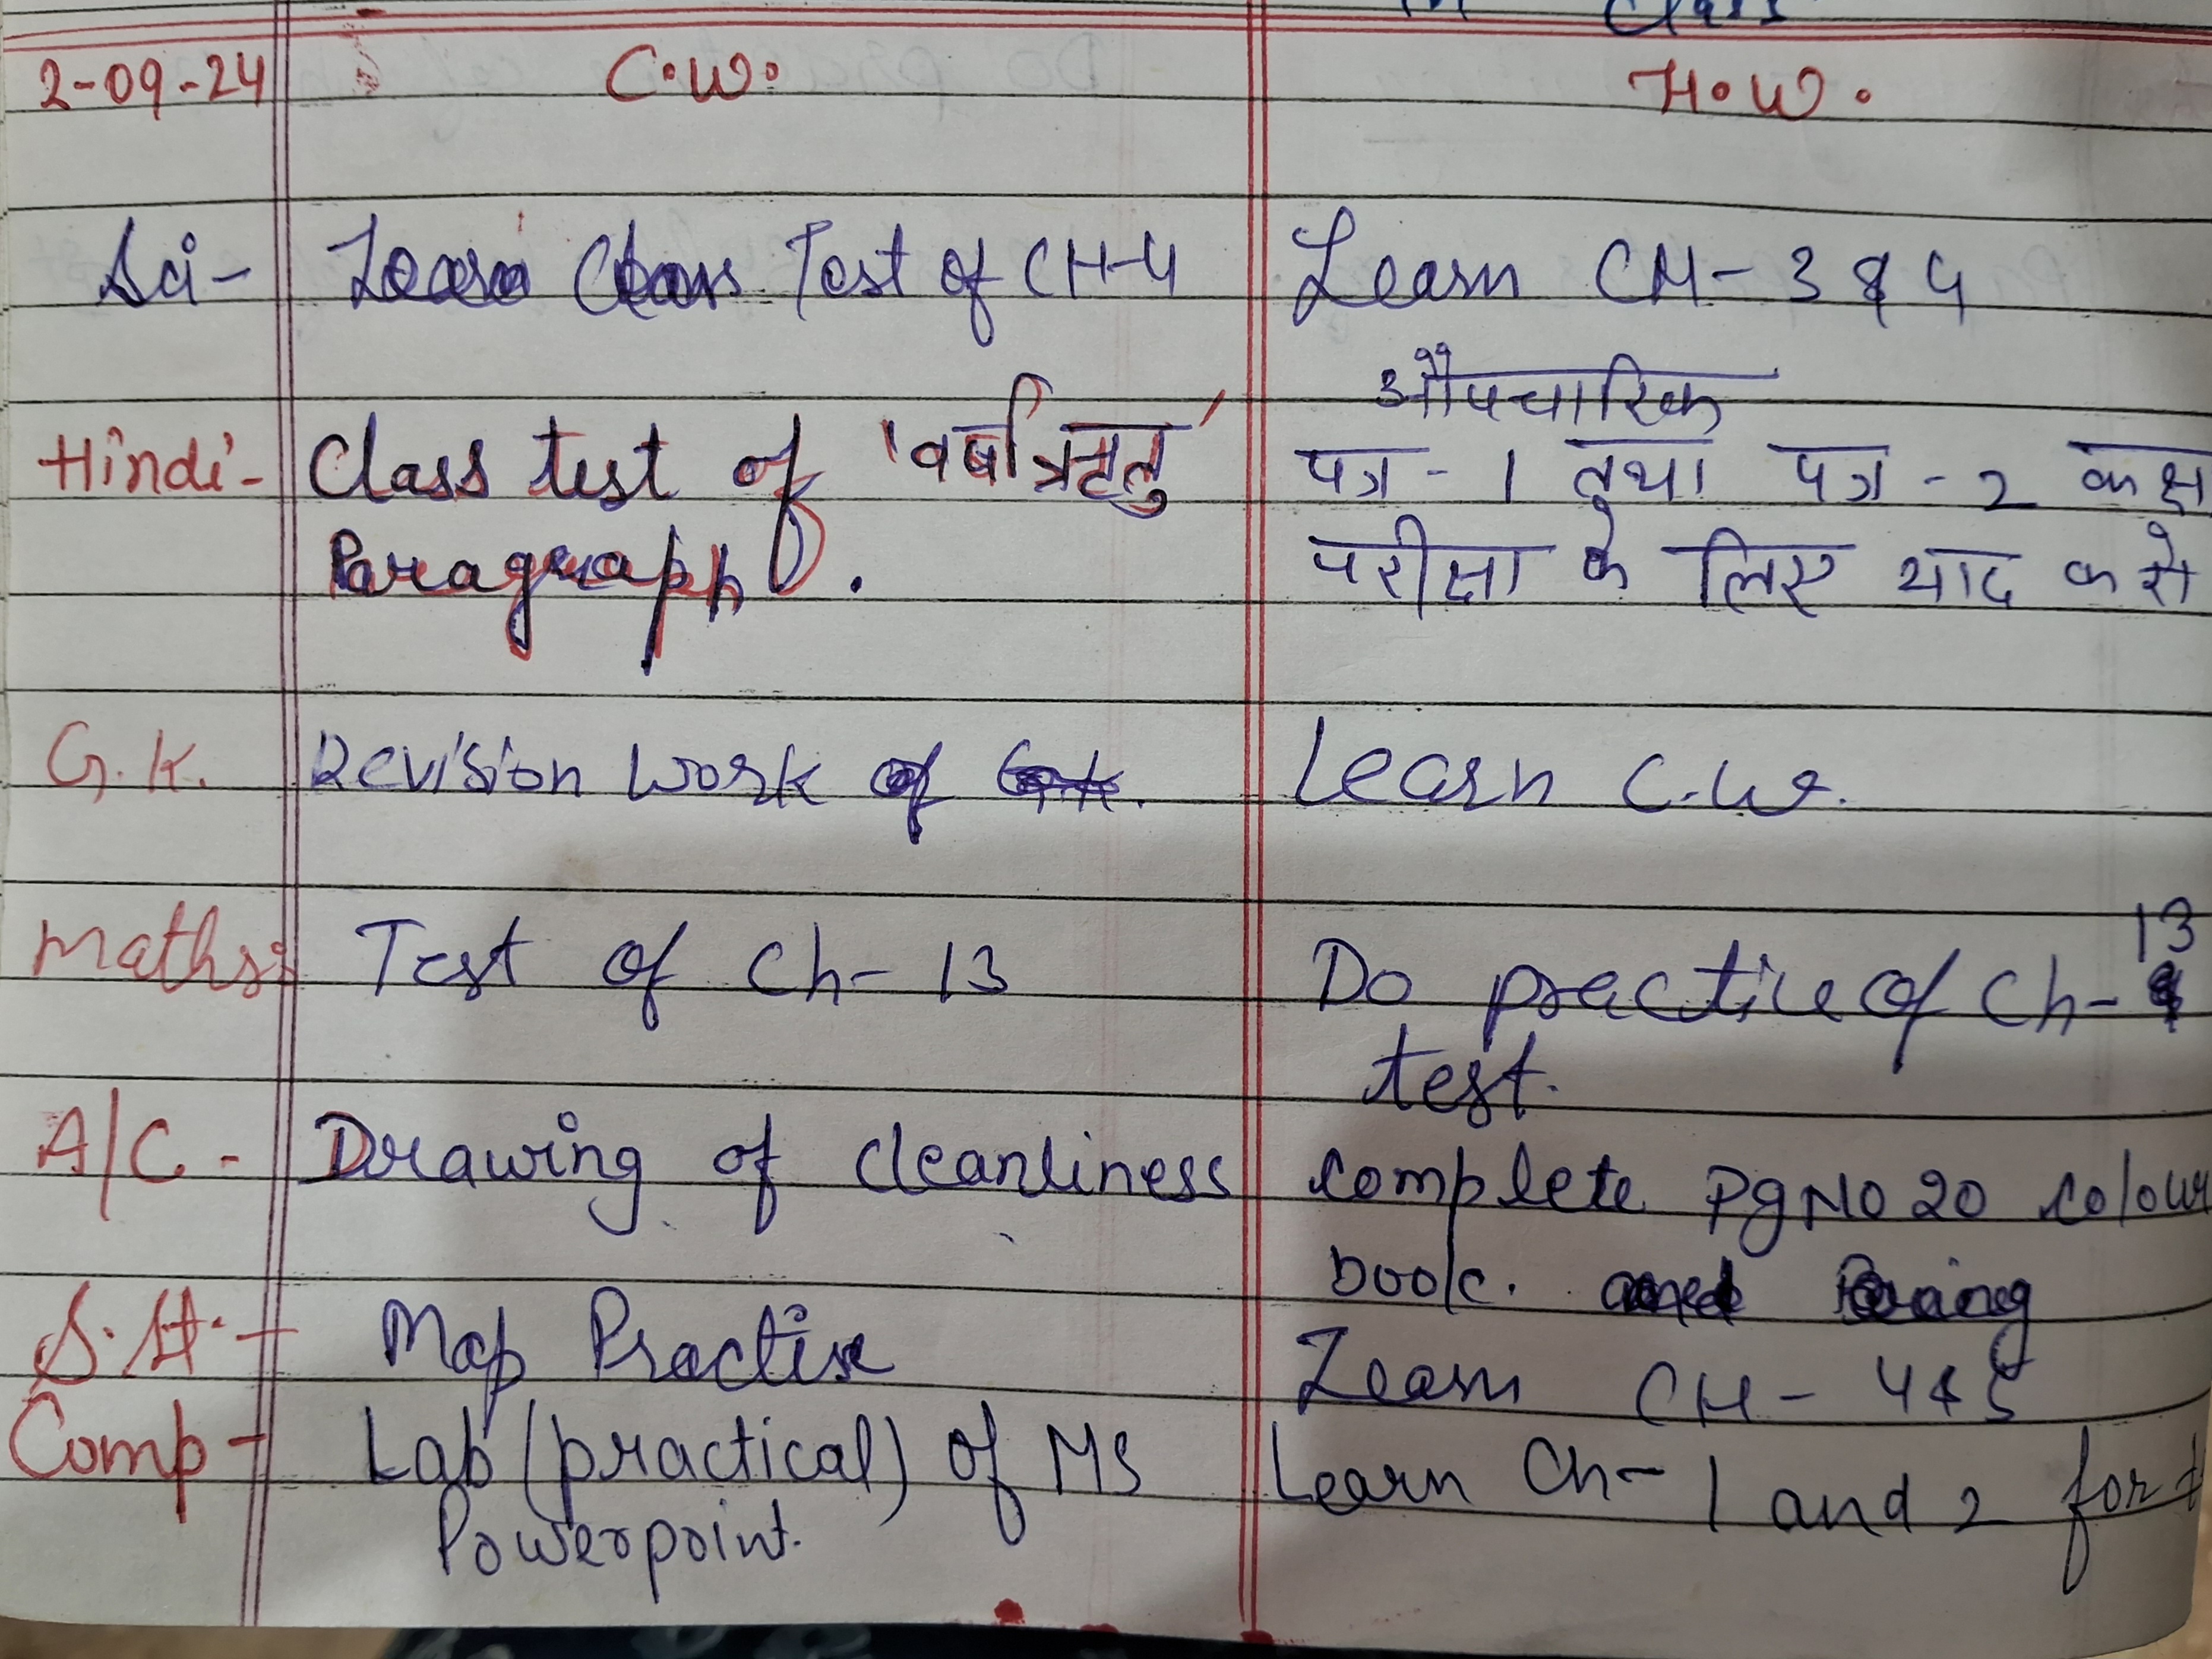 Class
2-09-24 C.W. H.W.
Sci- Class Test of CH-4 Learn CH-3 & 4
औपचारिक
Hindi- Class test of 'वर्षा ऋतु' पत्र-1 तथा पत्र-2 कक्ष
Paragraph. परीक्षा के लिए याद करो
G.K. Revision work of G.K. Learn C.W.
13
Maths: Test of Ch-13 Do practice of Ch-
test.
A/C- Drawing of cleanliness complete Pg No 20 colour
book. and
S.St.- Map Practise Learn CH-4&5
Comp- Lab (practical) of MS Learn Ch-1 and 2 for
Powerpoint.